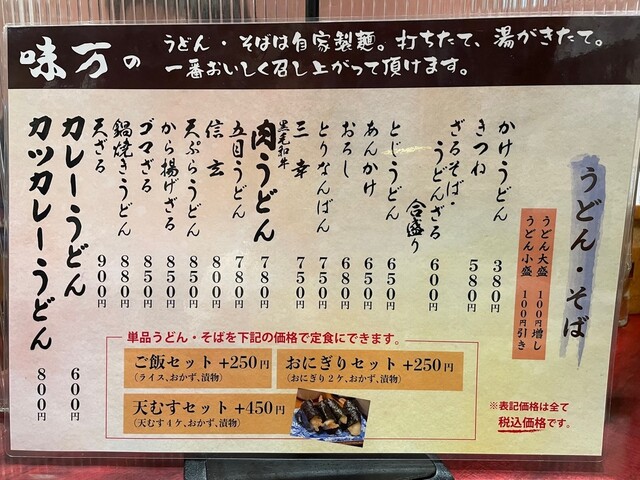 味万の
うどん・そばは自家製麺。打ちたて、湯がきたて。
一番おいしく召し上がって頂けます。
うどん・そば
うどん大盛 100円増し
うどん小盛 100円引き
かけうどん 380円
きつね 580円
ざるそば・
うどんざる
合盛り 600円
とじうどん 650円
あんかけ 650円
おろし 680円
とりなんばん 750円
三幸 750円
黒毛和牛
肉うどん 780円
五目うどん 780円
信玄 800円
天ぷらうどん 850円
から揚げざる 850円
ゴマざる 850円
鍋焼きうどん 880円
天ざる 900円
カレーうどん 600円
カツカレーうどん 800円
単品うどん・そばを下記の価格で定食にできます。
ご飯セット +250円
(ライス、おかず、漬物)
おにぎりセット +250円
(おにぎり2ケ、おかず、漬物)
天むすセット +450円
(天むす4ケ、おかず、漬物)
※表記価格は全て
税込価格です。